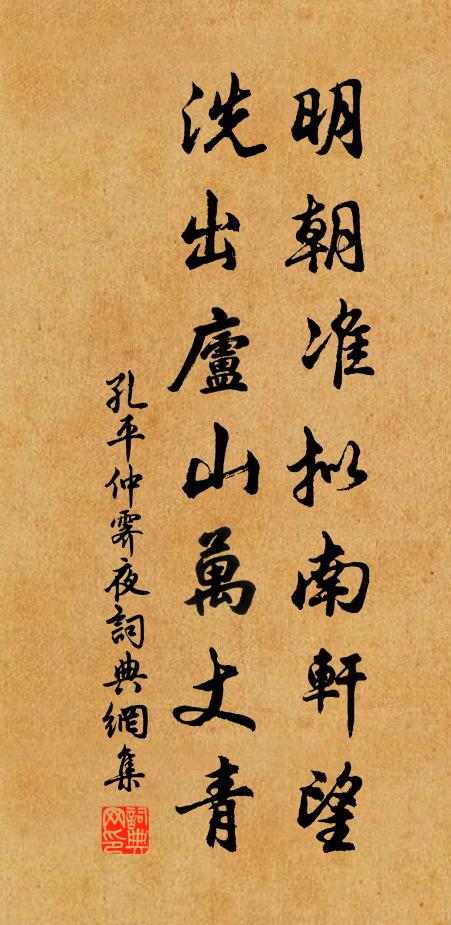 明朝准拟南軒望
洗出廬山萬丈青
孔平仲霽夜詞典網集
詞典网印